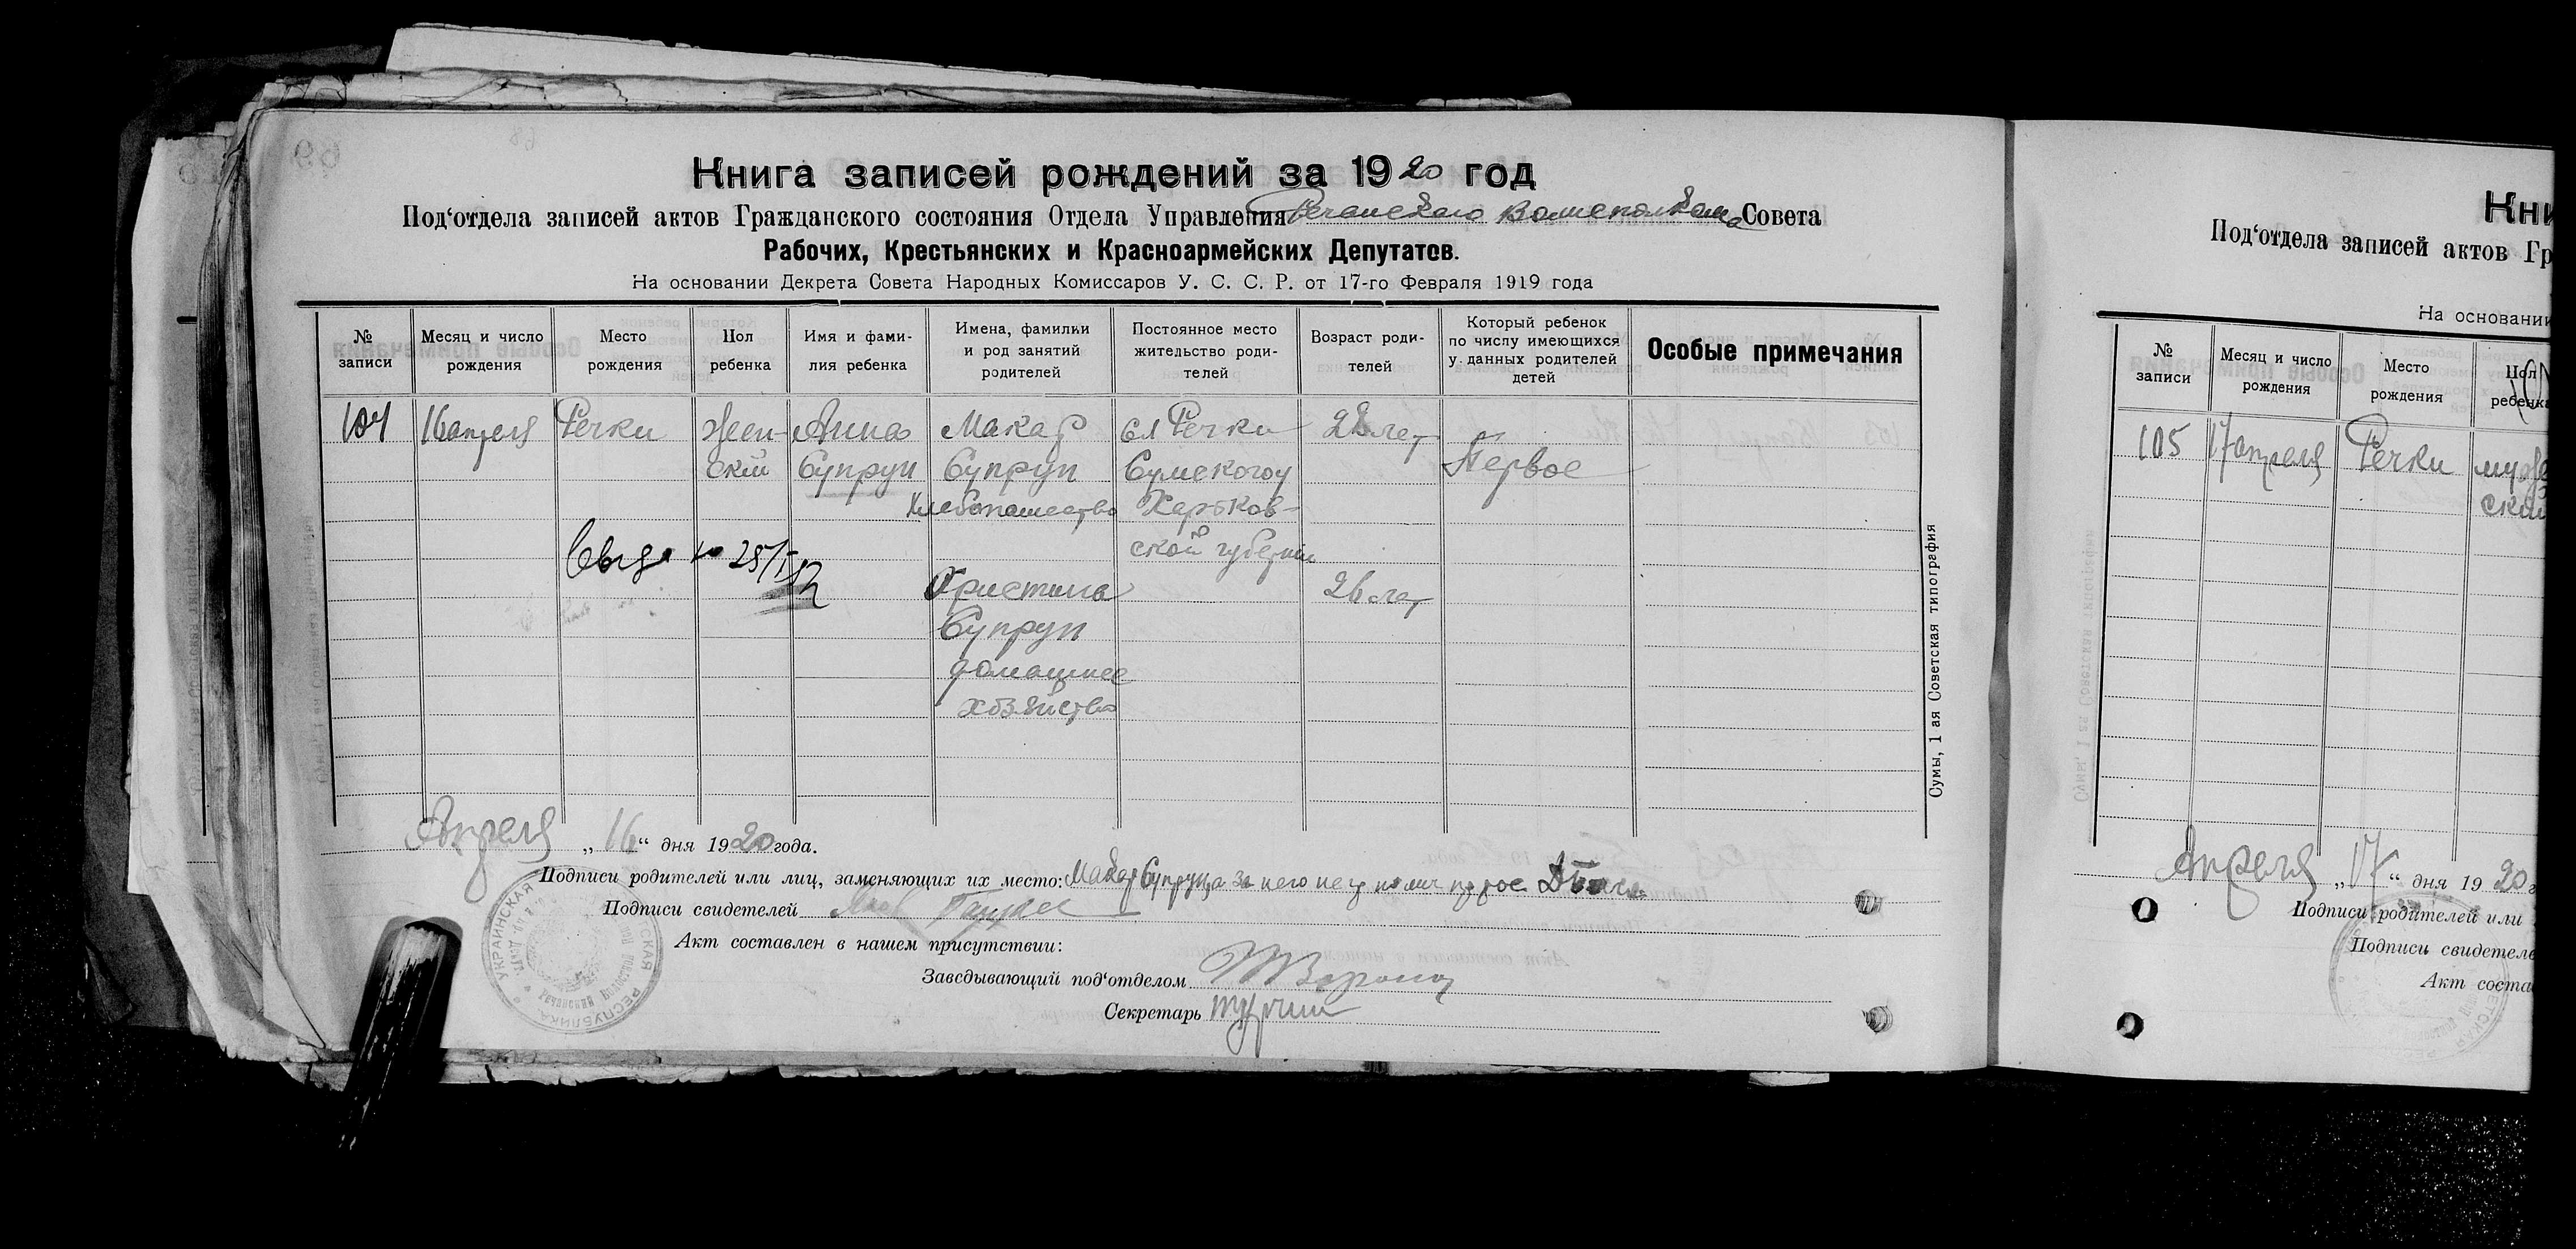 Книга записей рождений за 1920 год
Под‘отдела записей актов Гражданского состояния Отдела Управления Речанского Волисполкома Совета
Рабочих, Крестьянских и Красноармейских Депутатов.
На основании Декрета Совета Народных Комиссаров У. С. С. Р. от 17-го Февраля 1919 года
№ записи
Месяц и число рождения
Место рождения
Пол ребенка
Имя и фамилия ребенка
Имена, фамилии и род занятий родителей
Постоянное место жительство родителей
Возраст родителей
Который ребенок по числу имеющихся у данных родителей детей
Особые примечания
104 16 апреля Речки Жен- Анна Макар сл Речки 28 лет
ский Супрун Супрун Сумского у Первое
Хлебопашество Харьков-
ской губернии
Христина 26 лет
Супрун
домашнее
хозяйство
Сумы, 1 ая Советская типография
Апреля „16“ дня 1920 года.
Подписи родителей или лиц, заменяющих их место: Макар Супруна за него негр
Подписи свидетелей Яков
Акт составлен в нашем присутствии:
Заведывающий под‘отделом
Секретарь
УКРАИНСКАЯ РЕСПУБЛИКА
Речанский
Кни
Под‘отдела записей актов Гр
На основании
№ записи
Месяц и число рождения
Место рождения
Пол ребенка
105 17 апреля Речки муж
ский
Апреля „17“ дня 1920 г
Подписи родителей или
Подписи свидетеле
Акт соста